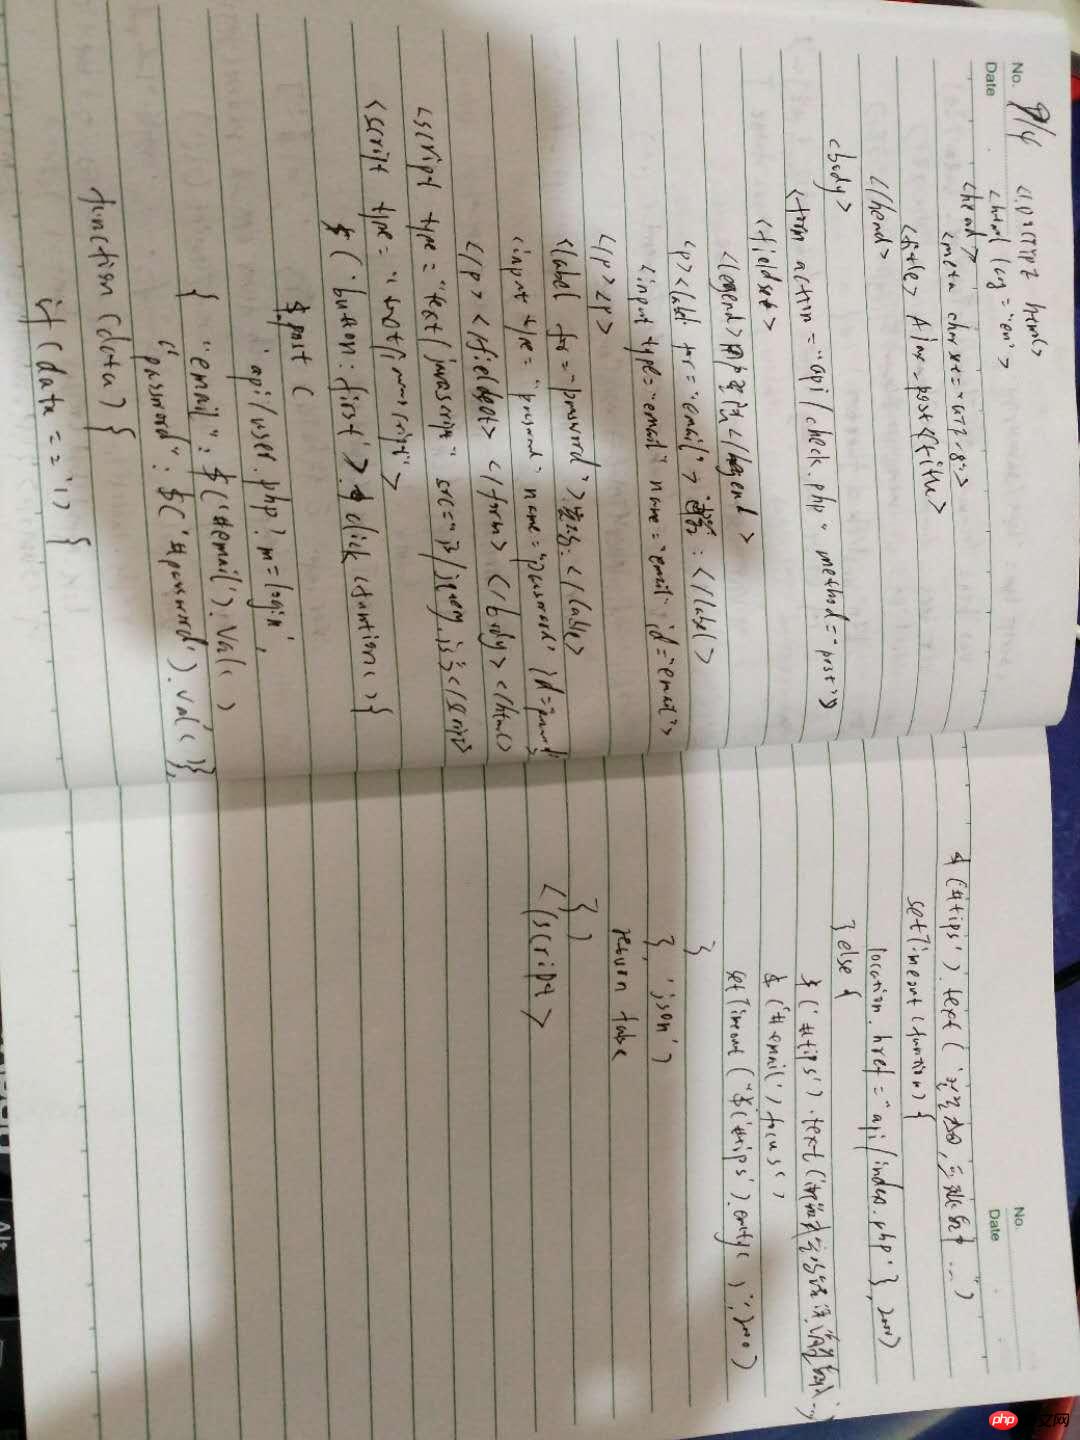 No.
Date
9/4
<!DOCTYPE html>
<html lang="en">
<head>
<meta charset="UTF-8">
<title> Ajax-post</title>
</head>
<body>
<form action="api/check.php" method="post">
<fieldset>
<legend>用户登录</legend>
<p><label for="email">邮箱:</label>
<input type="email" name="email" id="email">
</p><p>
<label for="password">密码:</lable>
<input type="password" name="password" id="password">
</p></fieldset></form></body></html>
<script type="text/javascript" src="js/jquery.js"></script>
<script type="text/javascript">
$('button:first').click(function(){
$.post(
'api/user.php?m=login',
{
"email":$('#email').val()
"password":$('#password').val()},
function(data){
if(data=='1){
No.
Date
$(#tips').text('登录成功,正在跳转中...')
setTimeout(function){
location.href="api/index.php'},2000)
}else{
$('#tips').text(
$('#email').focus()
setTimeout("$('#tips').empty()",2000)
}
},'json')
return false
})
</script>
php中文网